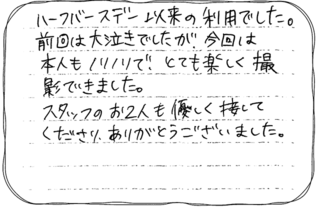 ハーフバースデー以来の利用でした。
前回は大泣きでしたが今回は
本人もノリノリで!とても楽しく撮
影できました。
スタッフのお2人も優しく接して
くださり、ありがとうございました。